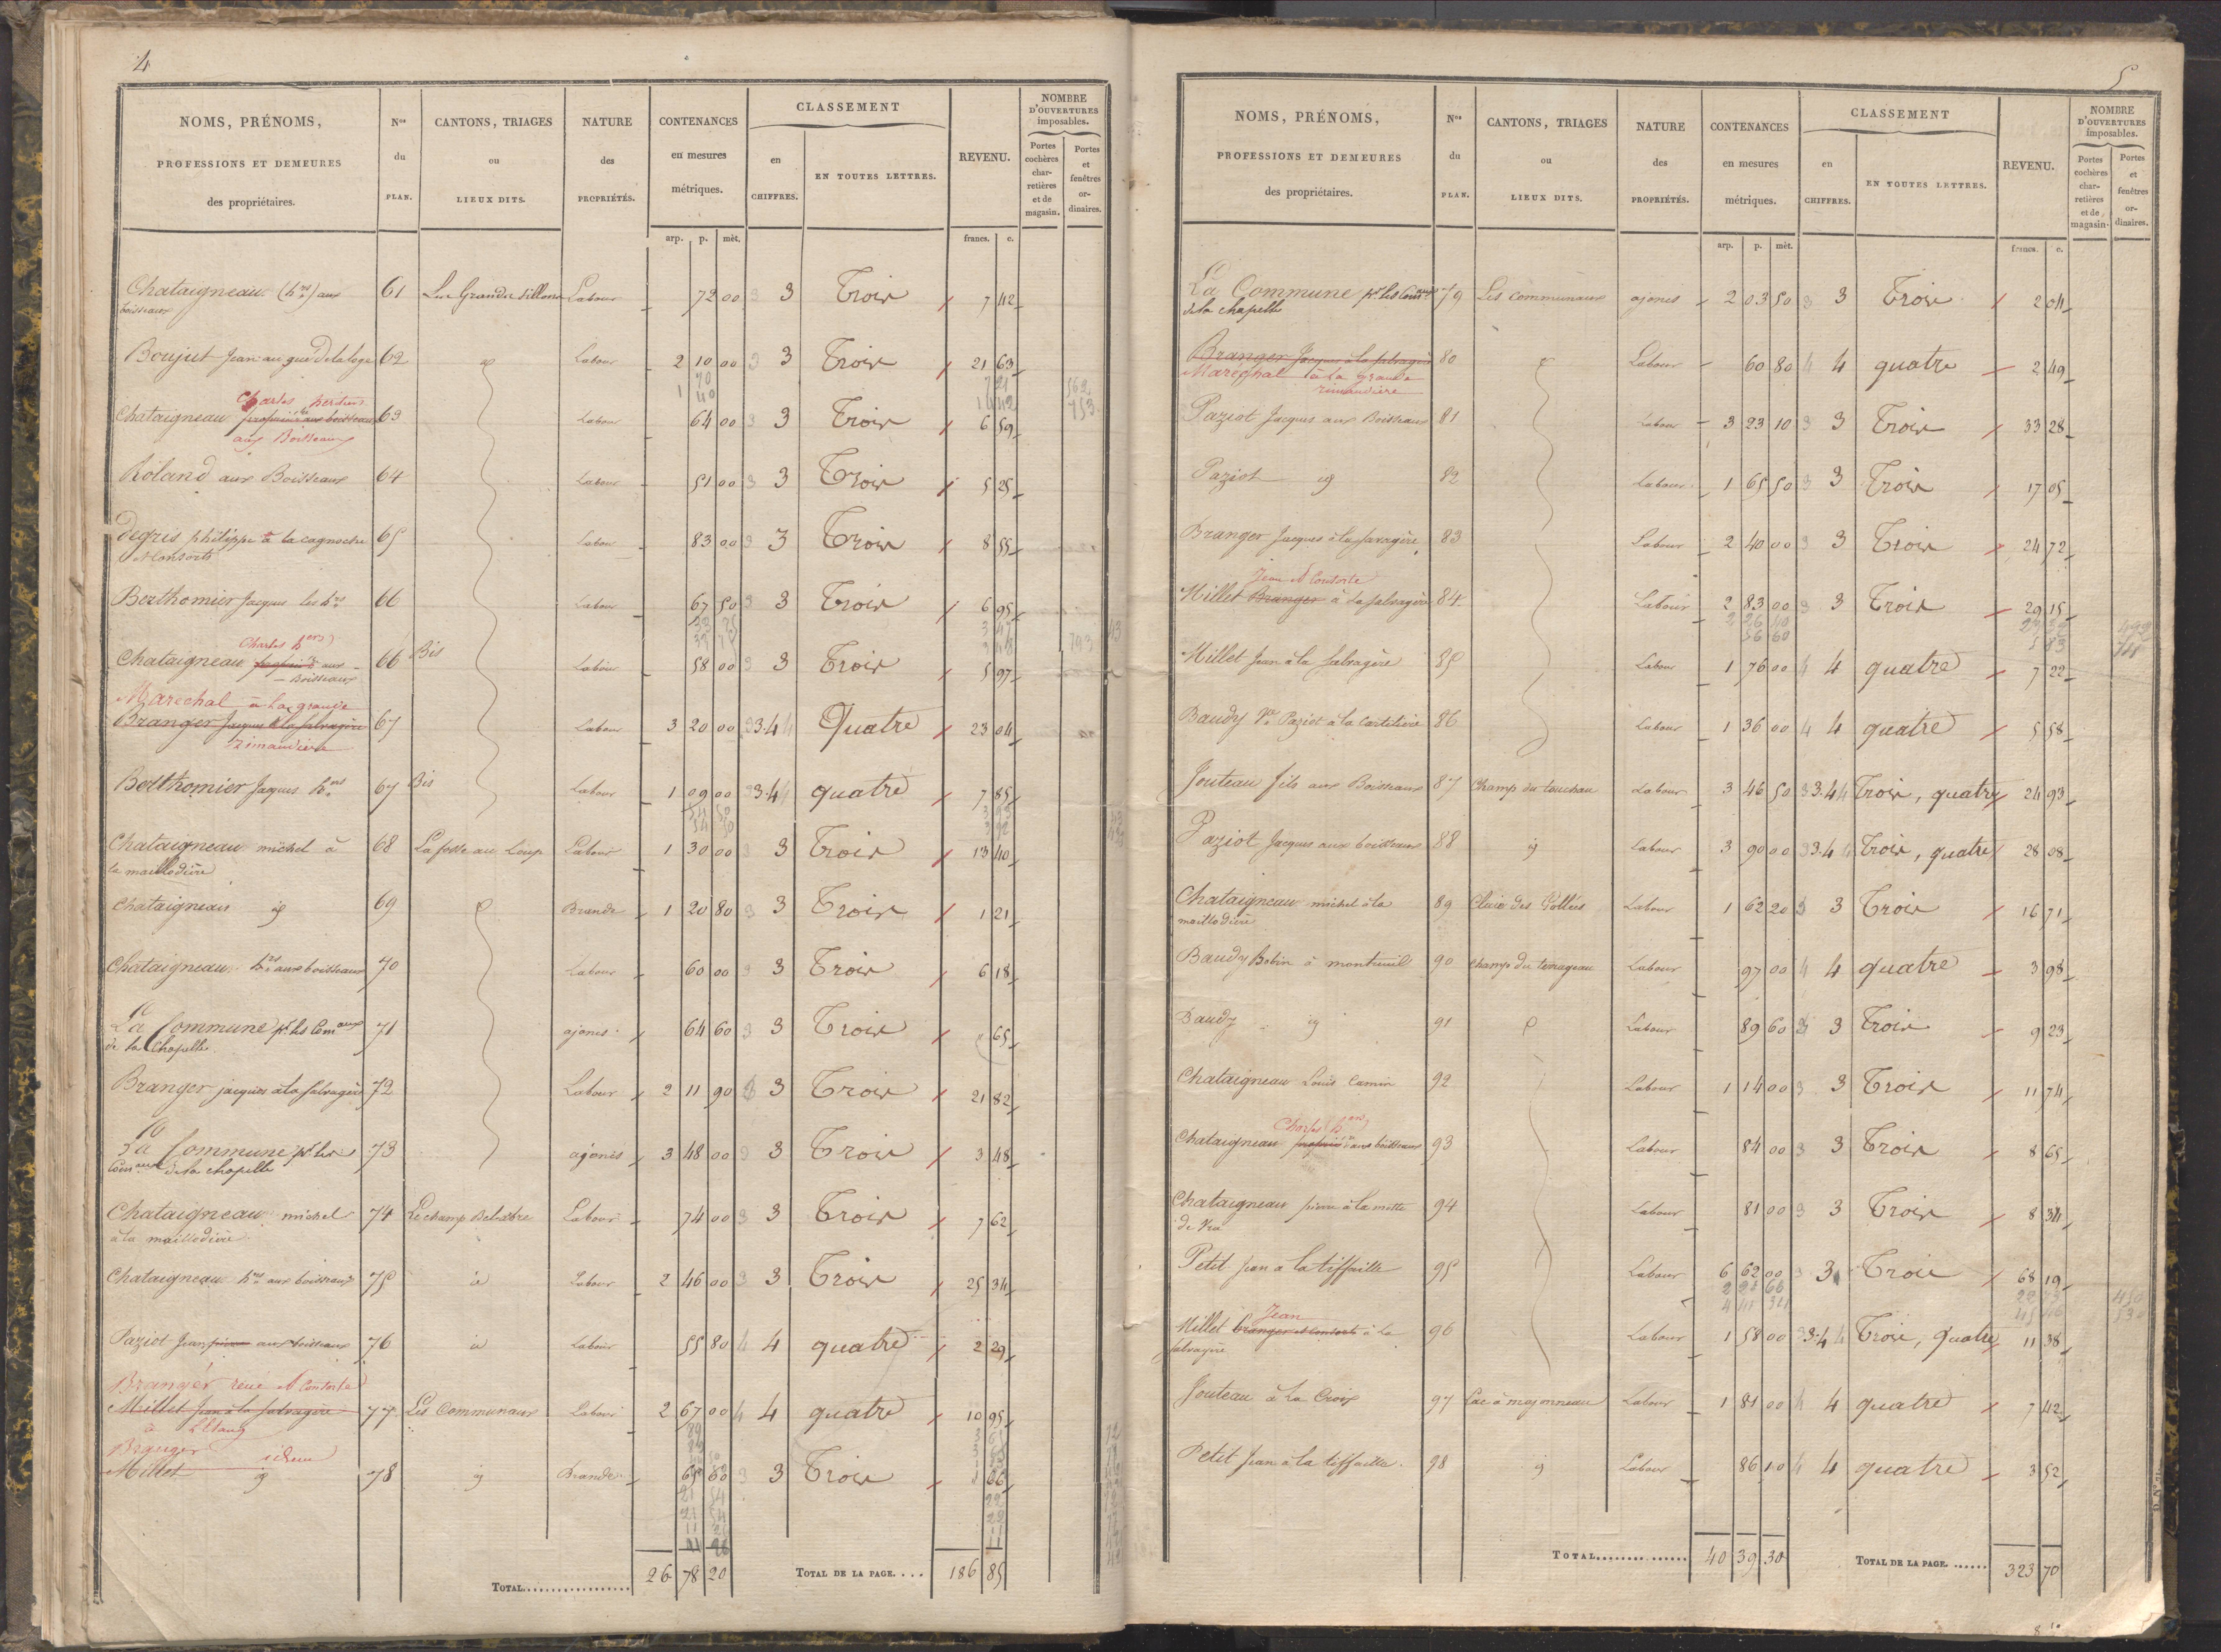 4
NOMS, PRÉNOMS, PROFESSIONS ET DEMEURES des propriétaires. Nos du PLAN. CANTONS, TRIAGES ou LIEUX DITS. NATURE des PROPRIÉTÉS. CONTENANCES en mesures métriques. CLASSEMENT en CHIFFRES. EN TOUTES LETTRES. REVENU. NOMBRE D'OUVERTURES imposables. Portes cochères charretières et de magasin. Portes et fenêtres ordinaires.
arp. p. mèt. francs. c.
Chataigneau (hrs) aux boisseaux 61 Labour 72 00 3 3 Trois 7 42
Boujut Jean au gué de la loge 62 id Labour 2 10 00 3 3 Trois 21 63
70 7 21
1 40 14 42
Charles
Chataigneau aux boisseaux 63 Labour 64 00 3 3 Trois 6 59
aux Boisseaux
Roland aux Boisseaux 64 Labour 51 00 3 3 Trois 5 25
degris philippe à la cagnoche 65 Labour 83 00 3 3 Trois 8 55
et Consorts
Berthomier Jacques les hrs 66 Labour 67 50 3 3 Trois 6 95
Charles hers
Chataigneau aux Boisseaux 66 Bis Labour 58 00 3 3 Trois 5 97
Marechal à la grande
Branger Jacques à la salvagère 67 Labour 3 20 00 3 3.4 4 Quatre 23 04
rimaudière
Berthomier Jacques hrs 67 Bis Labour 1 09 00 3 3.4 4 quatre 7 85
54 50
54 50
Chataigneau michel à la maillodière 68 La fosse au Loup Labour 1 30 00 3 3 Trois 13 40
Chataigneau id 69 id Brande 1 20 80 3 3 Trois 1 21
Chataigneau hrs aux boisseaux 70 Labour 60 00 3 3 Trois 6 18
La Commune pr les Comaux de la Chapelle 71 ajoncs 64 60 3 3 Trois " 65
Branger jacques à la salvagère 72 Labour 2 11 90 3 Trois 21 82
La Commune pr les Comaux de la chapelle 73 ajoncs 3 48 00 3 3 Trois 3 48
Chataigneau michel à la maillodière 74 Labour 74 00 3 3 Trois 7 62
Chataigneau hrs aux boisseaux 75 id Labour 2 46 00 3 3 Trois 25 34
Paziot Jean pierre aux boisseaux 76 id Labour 55 80 4 4 quatre 2 29
Branger rené et Consorts
Millet Jean à la salvagère 77 Les Communaux Labour 2 67 00 4 4 quatre 10 95
à l'Etang
Branger idem
Millet id 78 id Brande 65 60 3 3 Trois " 66
21 54
21 54
TOTAL.................. 26 78 20 TOTAL DE LA PAGE.... 186 85
5
NOMS, PRÉNOMS, PROFESSIONS ET DEMEURES des propriétaires. Nos du PLAN. CANTONS, TRIAGES ou LIEUX DITS. NATURE des PROPRIÉTÉS. CONTENANCES en mesures métriques. CLASSEMENT en CHIFFRES. EN TOUTES LETTRES. REVENU. NOMBRE D'OUVERTURES imposables. Portes cochères charretières et de magasin. Portes et fenêtres ordinaires.
arp. p. mèt. francs. c.
La Commune pr les Comaux de la chapelle 79 Les communaux ajoncs 2 03 50 3 3 Trois 2 04
Branger Jacques à la salvagère 80 id Labour 60 80 4 4 quatre 2 49
Marechal à la grande rimaudière
Paziot Jacques aux Boisseaux 81 Labour 3 23 10 3 3 Trois 33 28
Paziot id 82 Labour 1 65 50 3 3 Trois 17 05
Branger Jacques à la Savagère 83 Labour 2 40 00 3 3 Trois 24 72
Jean et Consorts
Millet Branger à la salvagère 84 Labour 2 83 00 3 3 Trois 29 15
2 26 40
56 60 5 83
Millet Jean à la Salvagère 85 Labour 1 76 00 4 4 quatre 7 22
Baudy Ve Paziot à la 86 Labour 1 36 00 4 4 quatre 5 58
Jouteau fils aux Boisseaux 87 Champ du touchau Labour 3 46 50 3 3.4 4 Trois, quatre 24 93
Paziot Jacques aux boisseaux 88 id Labour 3 90 00 3 3.4 4 Trois, quatre 28 08
Chataigneau michel à la maillodière 89 Labour 1 62 20 3 3 Trois 16 71
Baudy Bobin à monteuil 90 Labour 97 00 4 4 quatre 3 98
Baudy id 91 id Labour 89 60 3 3 Trois 9 23
Chataigneau Louis Camin 92 Labour 1 14 00 3 3 Trois 11 74
Charles (hers)
Chataigneau aux boisseaux 93 Labour 84 00 3 3 Trois 8 65
Chataigneau pierre à la motte 94 Labour 81 00 3 3 Trois 8 34
Petit jean à la tiffaille 95 Labour 6 62 00 3 3 Trois 68 19
2 20 66
4 41 34
Jean
Millet Branger et consorts à la salvagère 96 Labour 1 58 00 3 3.4 4 Trois, Quatre 11 38
Jouteau à la Croix 97 Labour 1 81 00 4 4 quatre 7 42
Petit Jean à la tiffaille. 98 id Labour 86 10 4 4 quatre 3 52
TOTAL............... 40 39 30 TOTAL DE LA PAGE....... 323 70